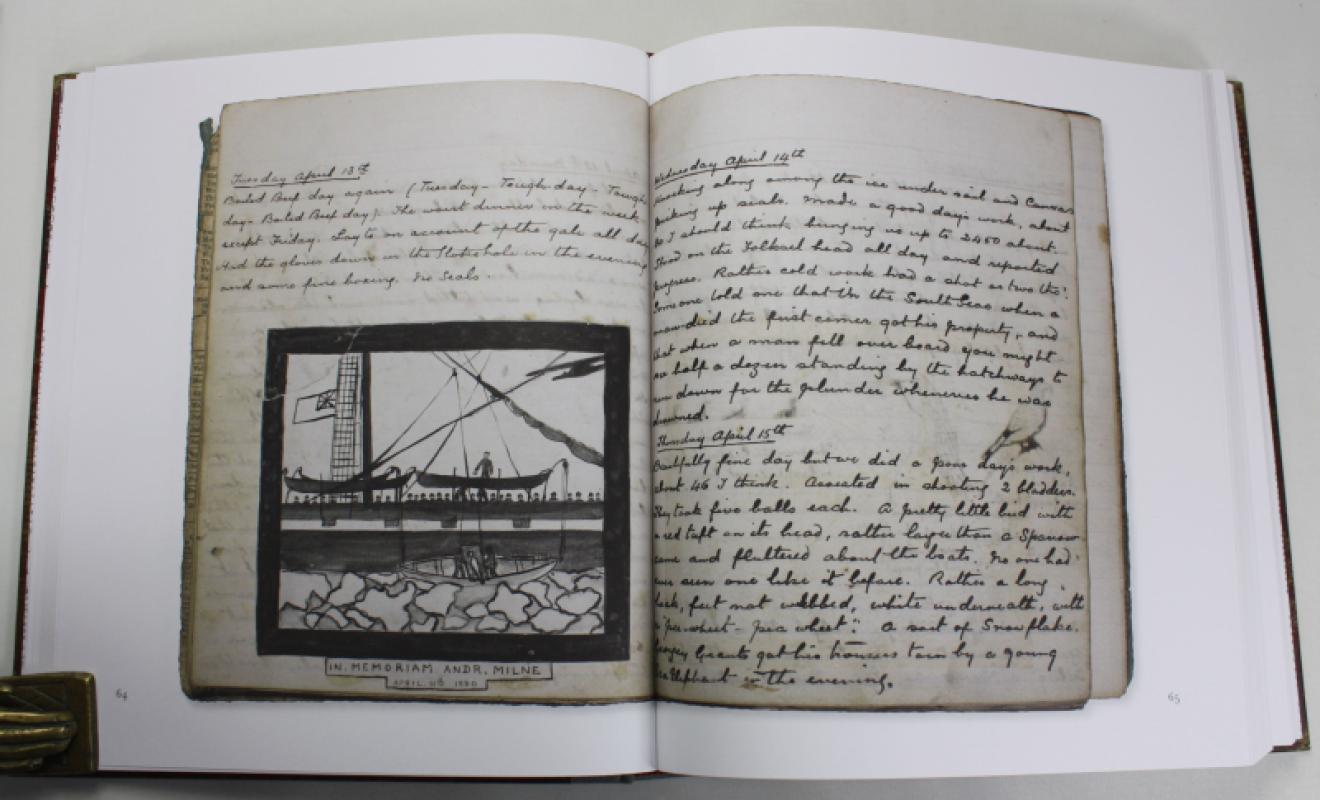 Tuesday April 13th
Boiled Beef day again (Tuesday - Tough day - Tough
day - Boiled Beef day). The worst dinner in the week
except Friday. Lay to on account of the gale all day
Had the gloves down in the Stokehole in the evening
and some fine boxing. No Seals.
IN. MEMORIAM. ANDR. MILNE
APRIL. 1880
64
Wednesday April 14th
along among the ice under sail and Canvas
picking up seals. Made a good day's work, about
I should think, bringing us up to 2450 about.
Stood on the Folksel head all day and reported
progress. Rather cold work had a shot or two tho'.
Someone told me that in the South Seas when a
man died the first comer got his property, and
that when a man fell over board you might
see half a dozen standing by the hatchways to
run down for the plunder whenever he was
drowned.
Thursday April 15th
Beautifully fine day but we did a poor days work,
about 46 I think. Assisted in shooting 2 bladders.
They took five balls each. A pretty little bird with
a red tuft on its head, rather larger than a Sparrow
came and fluttered about the boats. No one had
ever seen one like it before. Rather a long
beak, feet not webbed, white underneath, with
a "pea-wheet - pea wheet". A sort of Snowflake.
Grants got his trousers torn by a young
Sea Elephant in the evening.
65